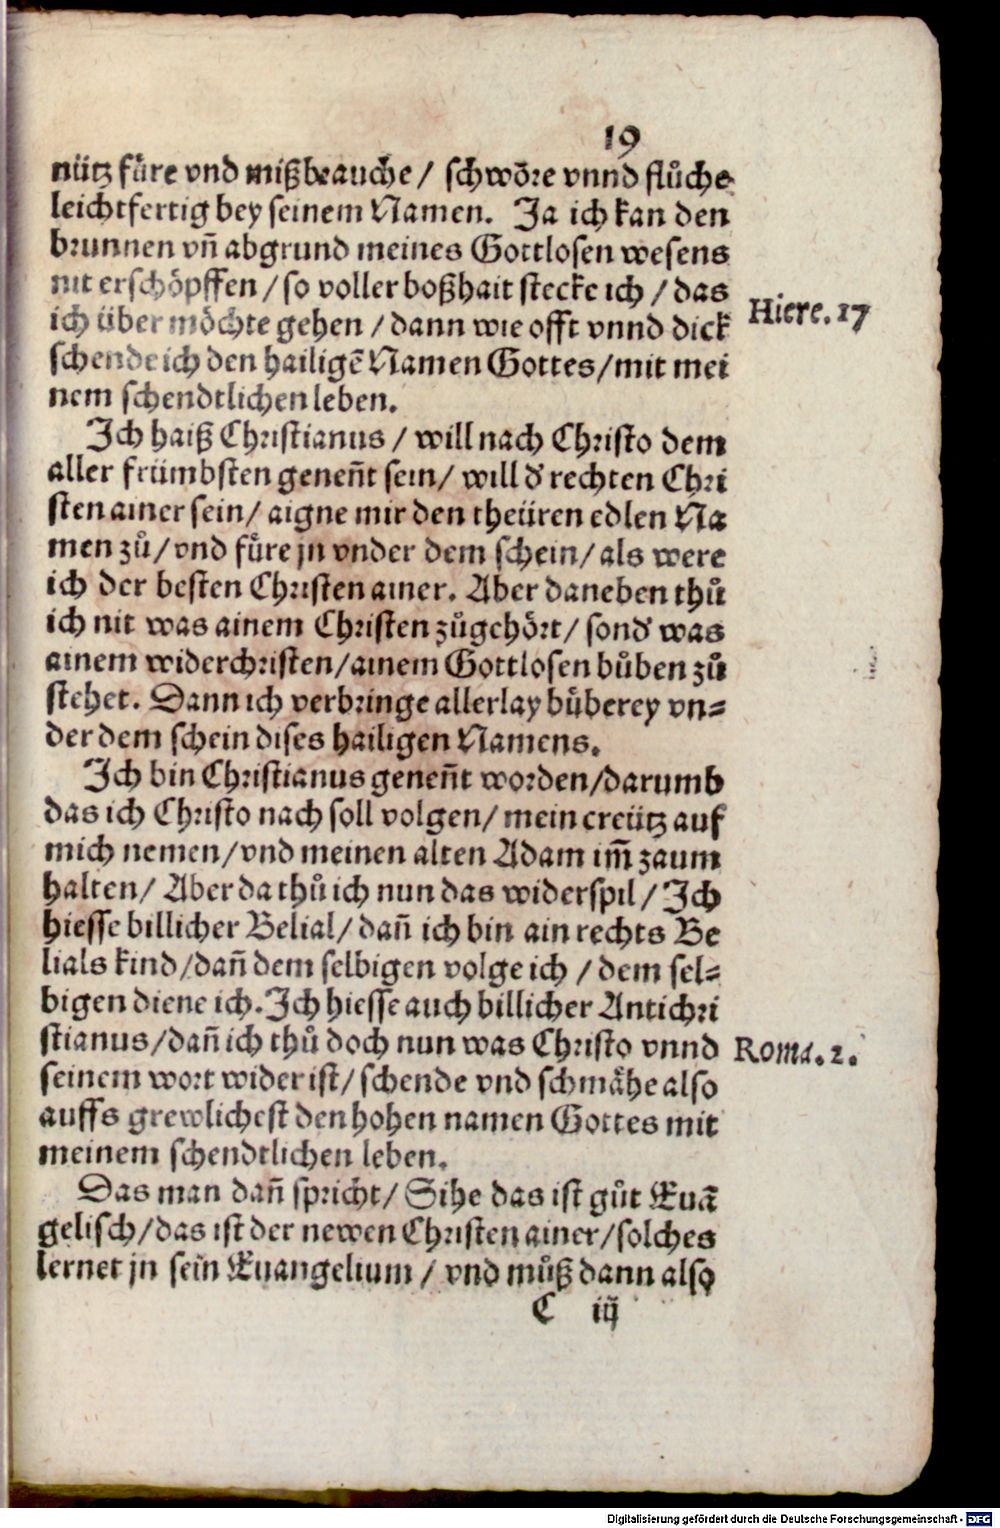 19
nütz fůre vnd mißbrauche / schwöre vnnd flůche
leichtfertig bey seinem Namen. Ja ich kan den
brunnen vn̄ abgrund meines Gottlosen wesens
nit erschöpffen / so voller boßhait stecke ich / das
ich über möchte gehen / dann wie offt vnnd dick
Hiere. 17
schende ich den hailigē Namen Gottes / mit mei
nem schendtlichen leben.
Ich haiß Christianus / will nach Christo dem
aller frümbsten geneñt sein / will d' rechten Chri
sten ainer sein / aigne mir den theüren edlen Na
men zů / vnd fůre jn vnder dem schein / als were
ich der besten Christen ainer. Aber daneben thů
ich nit was ainem Christen zůgehört / sond' was
ainem widerchristen / ainem Gottlosen bůben zů
stehet. Dann ich verbringe allerlay bůberey vn=
der dem schein dises hailigen Namens.
Ich bin Christianus geneñt worden / darumb
das ich Christo nach soll volgen / mein creütz auf
mich nemen / vnd meinen alten Adam im̄ zaum
halten / Aber da thů ich nun das widerspil / Ich
hiesse billicher Belial / dañ ich bin ain rechts Be
lials kind / dañ dem selbigen volge ich / dem sel=
bigen diene ich. Ich hiesse auch billicher Antichri
stianus / dañ ich thů doch nun was Christo vnnd
Roma. 2.
seinem wort wider ist / schende vnd schmähe also
auffs grewlichest den hohen namen Gottes mit
meinem schendtlichen leben.
Das man dañ spricht / Sihe das ist gůt Euā
gelisch / das ist der newen Christen ainer / solches
lernet jn sein Euangelium / vnd můß dann also
C iij
Digitalisierung gefördert durch die Deutsche Forschungsgemeinschaft - DFG